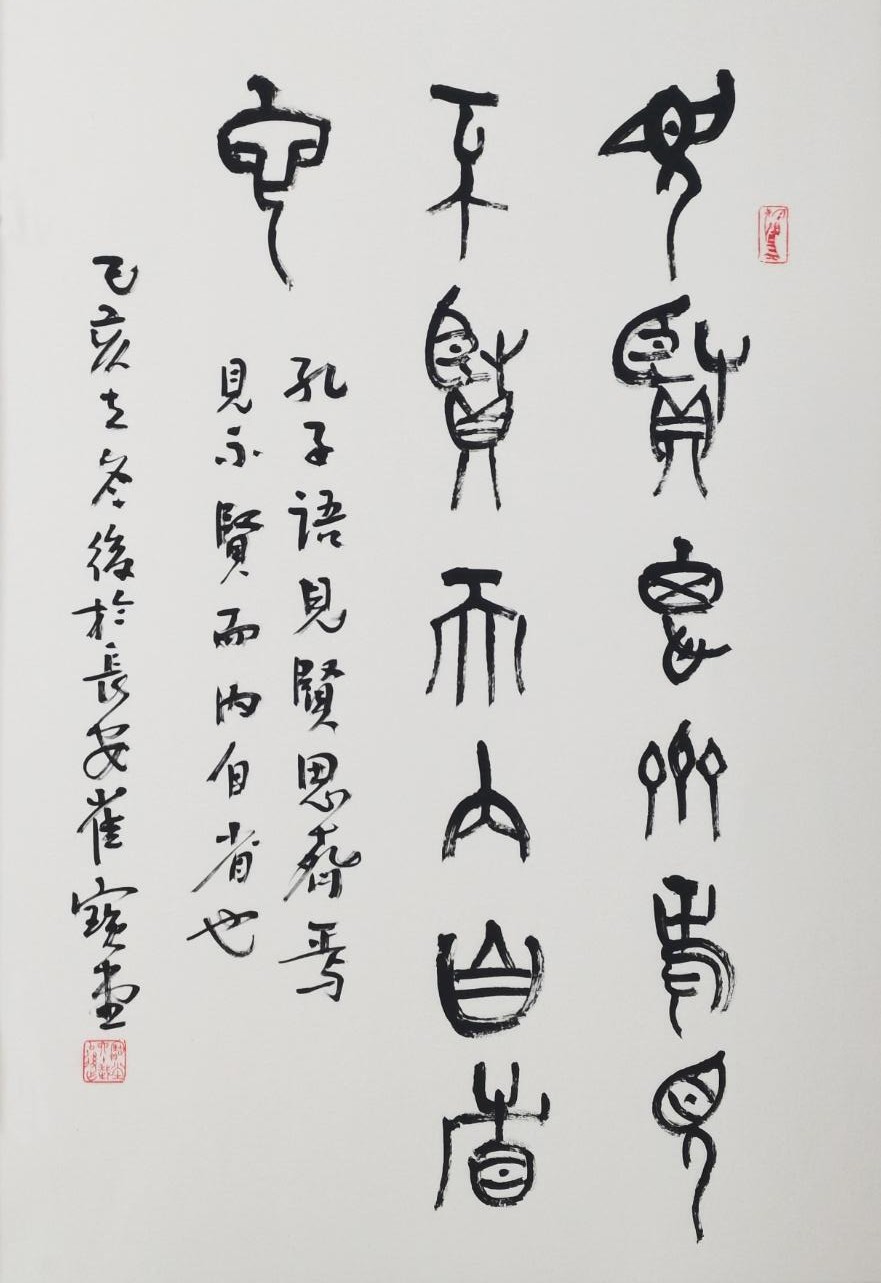 見賢思齊焉見
不賢而內自省
也
孔子語見賢思齊焉
見不賢而內自省也
己亥立冬後於長安崔寶堂